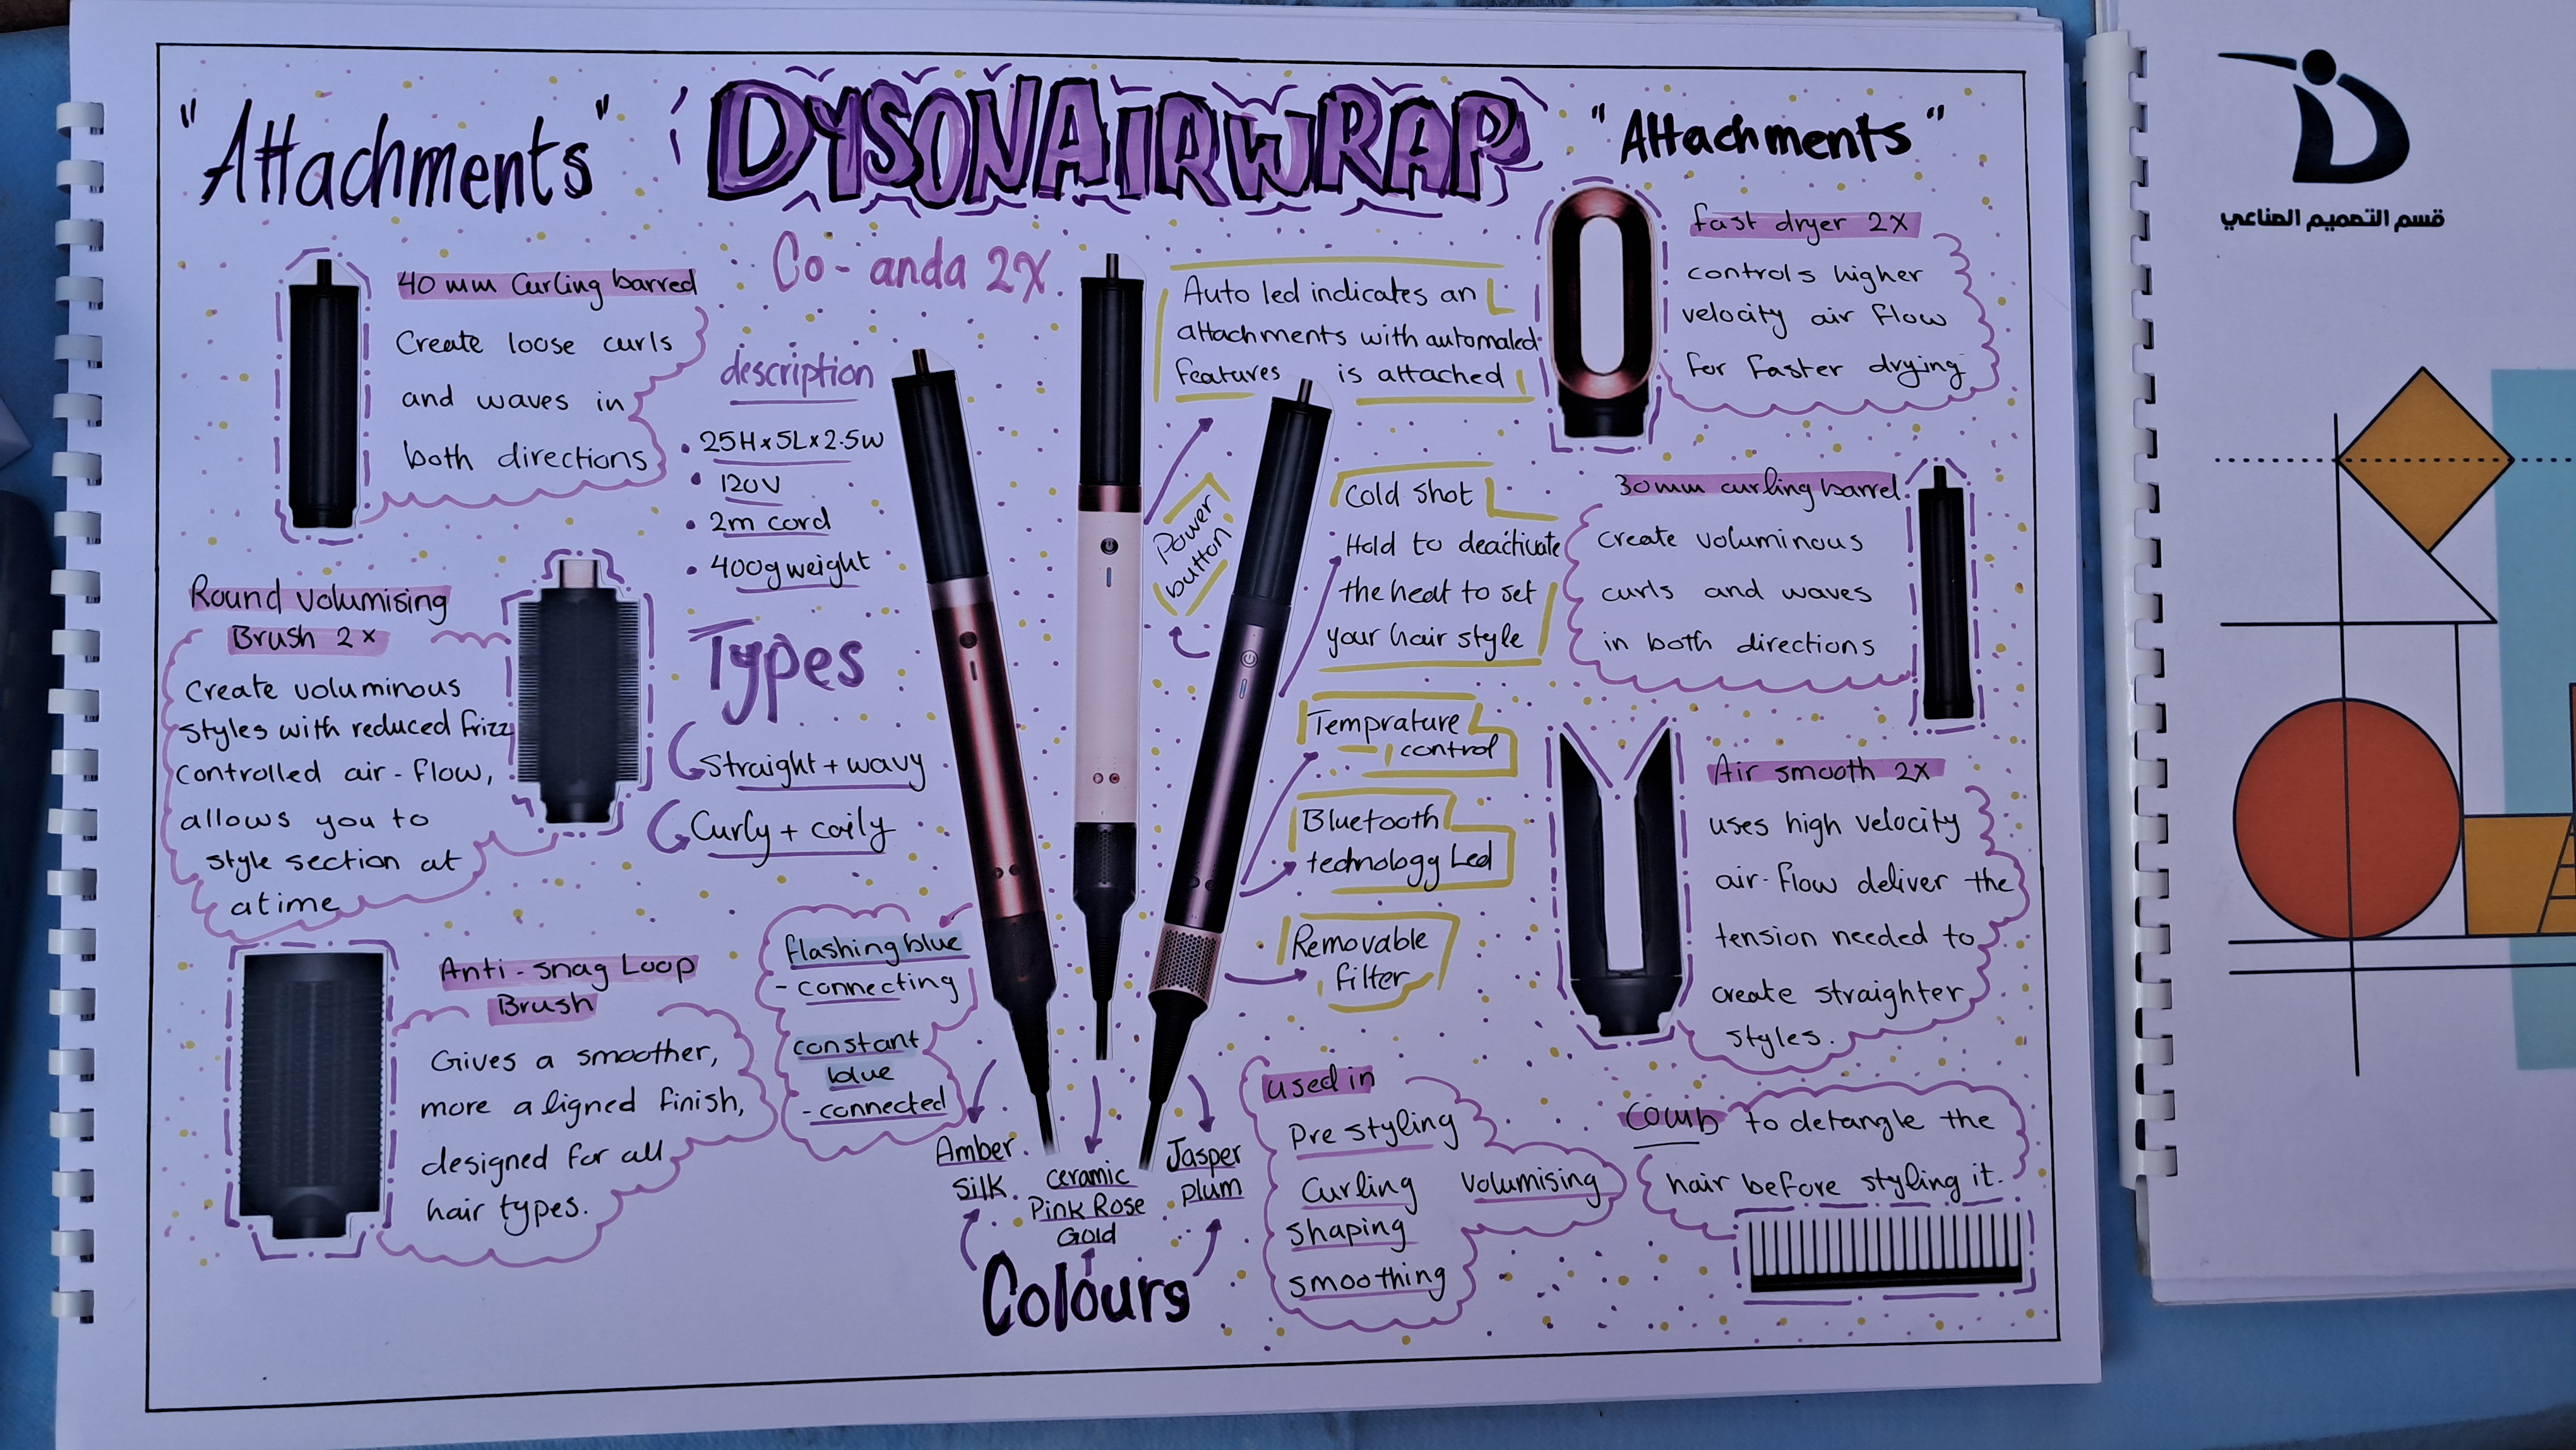 DYSON AIRWRAP
"Attachments"
40 mm Curling barred
Create loose curls
and waves in
both directions
Round volumising
Brush 2x
Create voluminous
styles with reduced frizz
controlled air-flow,
allows you to
style section at
atime
Anti-snag Loop
Brush
Gives a smoother,
more aligned finish,
designed for all
hair types.
Co-anda 2X
description
• 25H x 5L x 2.5W
• 120V
• 2m cord
• 400g weight
Types
Straight + wavy
Curly + coily
flashing blue
- connecting
constant
blue
- connected
Auto led indicates an
attachments with automated
features is attached
Power
button
Cold shot
Hold to deactivate
the heat to set
your hair style
Temprature
control
Bluetooth
technology Led
Removable
filter
Amber
Silk
ceramic
Pink Rose
Gold
Jasper
plum
Colours
used in
Pre styling
Curling volumising
shaping
smoothing
"Attachments"
fast dryer 2X
controls higher
velocity air flow
for faster drying
30mm curling barrel
create voluminous
curls and waves
in both directions
Air smooth 2X
uses high velocity
air-flow deliver the
tension needed to
create straighter
styles.
comb to detangle the
hair before styling it.
قسم التصميم الصناعي